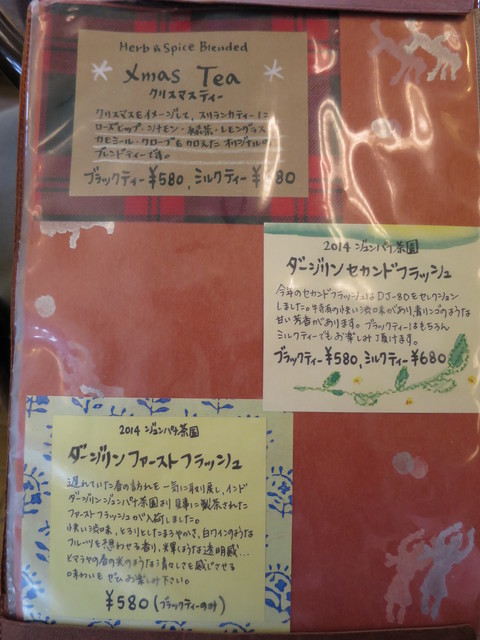 Herb & Spice Blended
Xmas Tea
クリスマスティー
クリスマスをイメージして、スリランカティーに
ローズヒップ・シナモン・緑茶・レモングラス
カモミール・クローブを加えた オリジナルの
ブレンドティーです。
ブラックティー ¥580、ミルクティー ¥680
2014 ジュンパナ茶園
ダージリン セカンドフラッシュ
今年のセカンドフラッシュはDJ-80をセレクション
しました。特有の快い渋味があり、青リンゴのような
甘い芳香があります。ブラックティーはもちろん
ミルクティーでもお楽しみ頂けます。
ブラックティー ¥580、ミルクティー ¥680
2014 ジュンパナ茶園
ダージリン ファーストフラッシュ
遅れていた春の訪れを一気に取り戻し、インド
ダージリンジュンパナ茶園より 見事に製茶された
ファーストフラッシュが入荷しました。
快い渋味、とろりとしたまろやかさ、白ワインのような
フルーツを想わせる香り、輝くような透明感…
ヒマラヤの春の光のような清々しさを感じさせる
味わいを ぜひお楽しみ下さい。
¥580 (ブラックティーのみ)